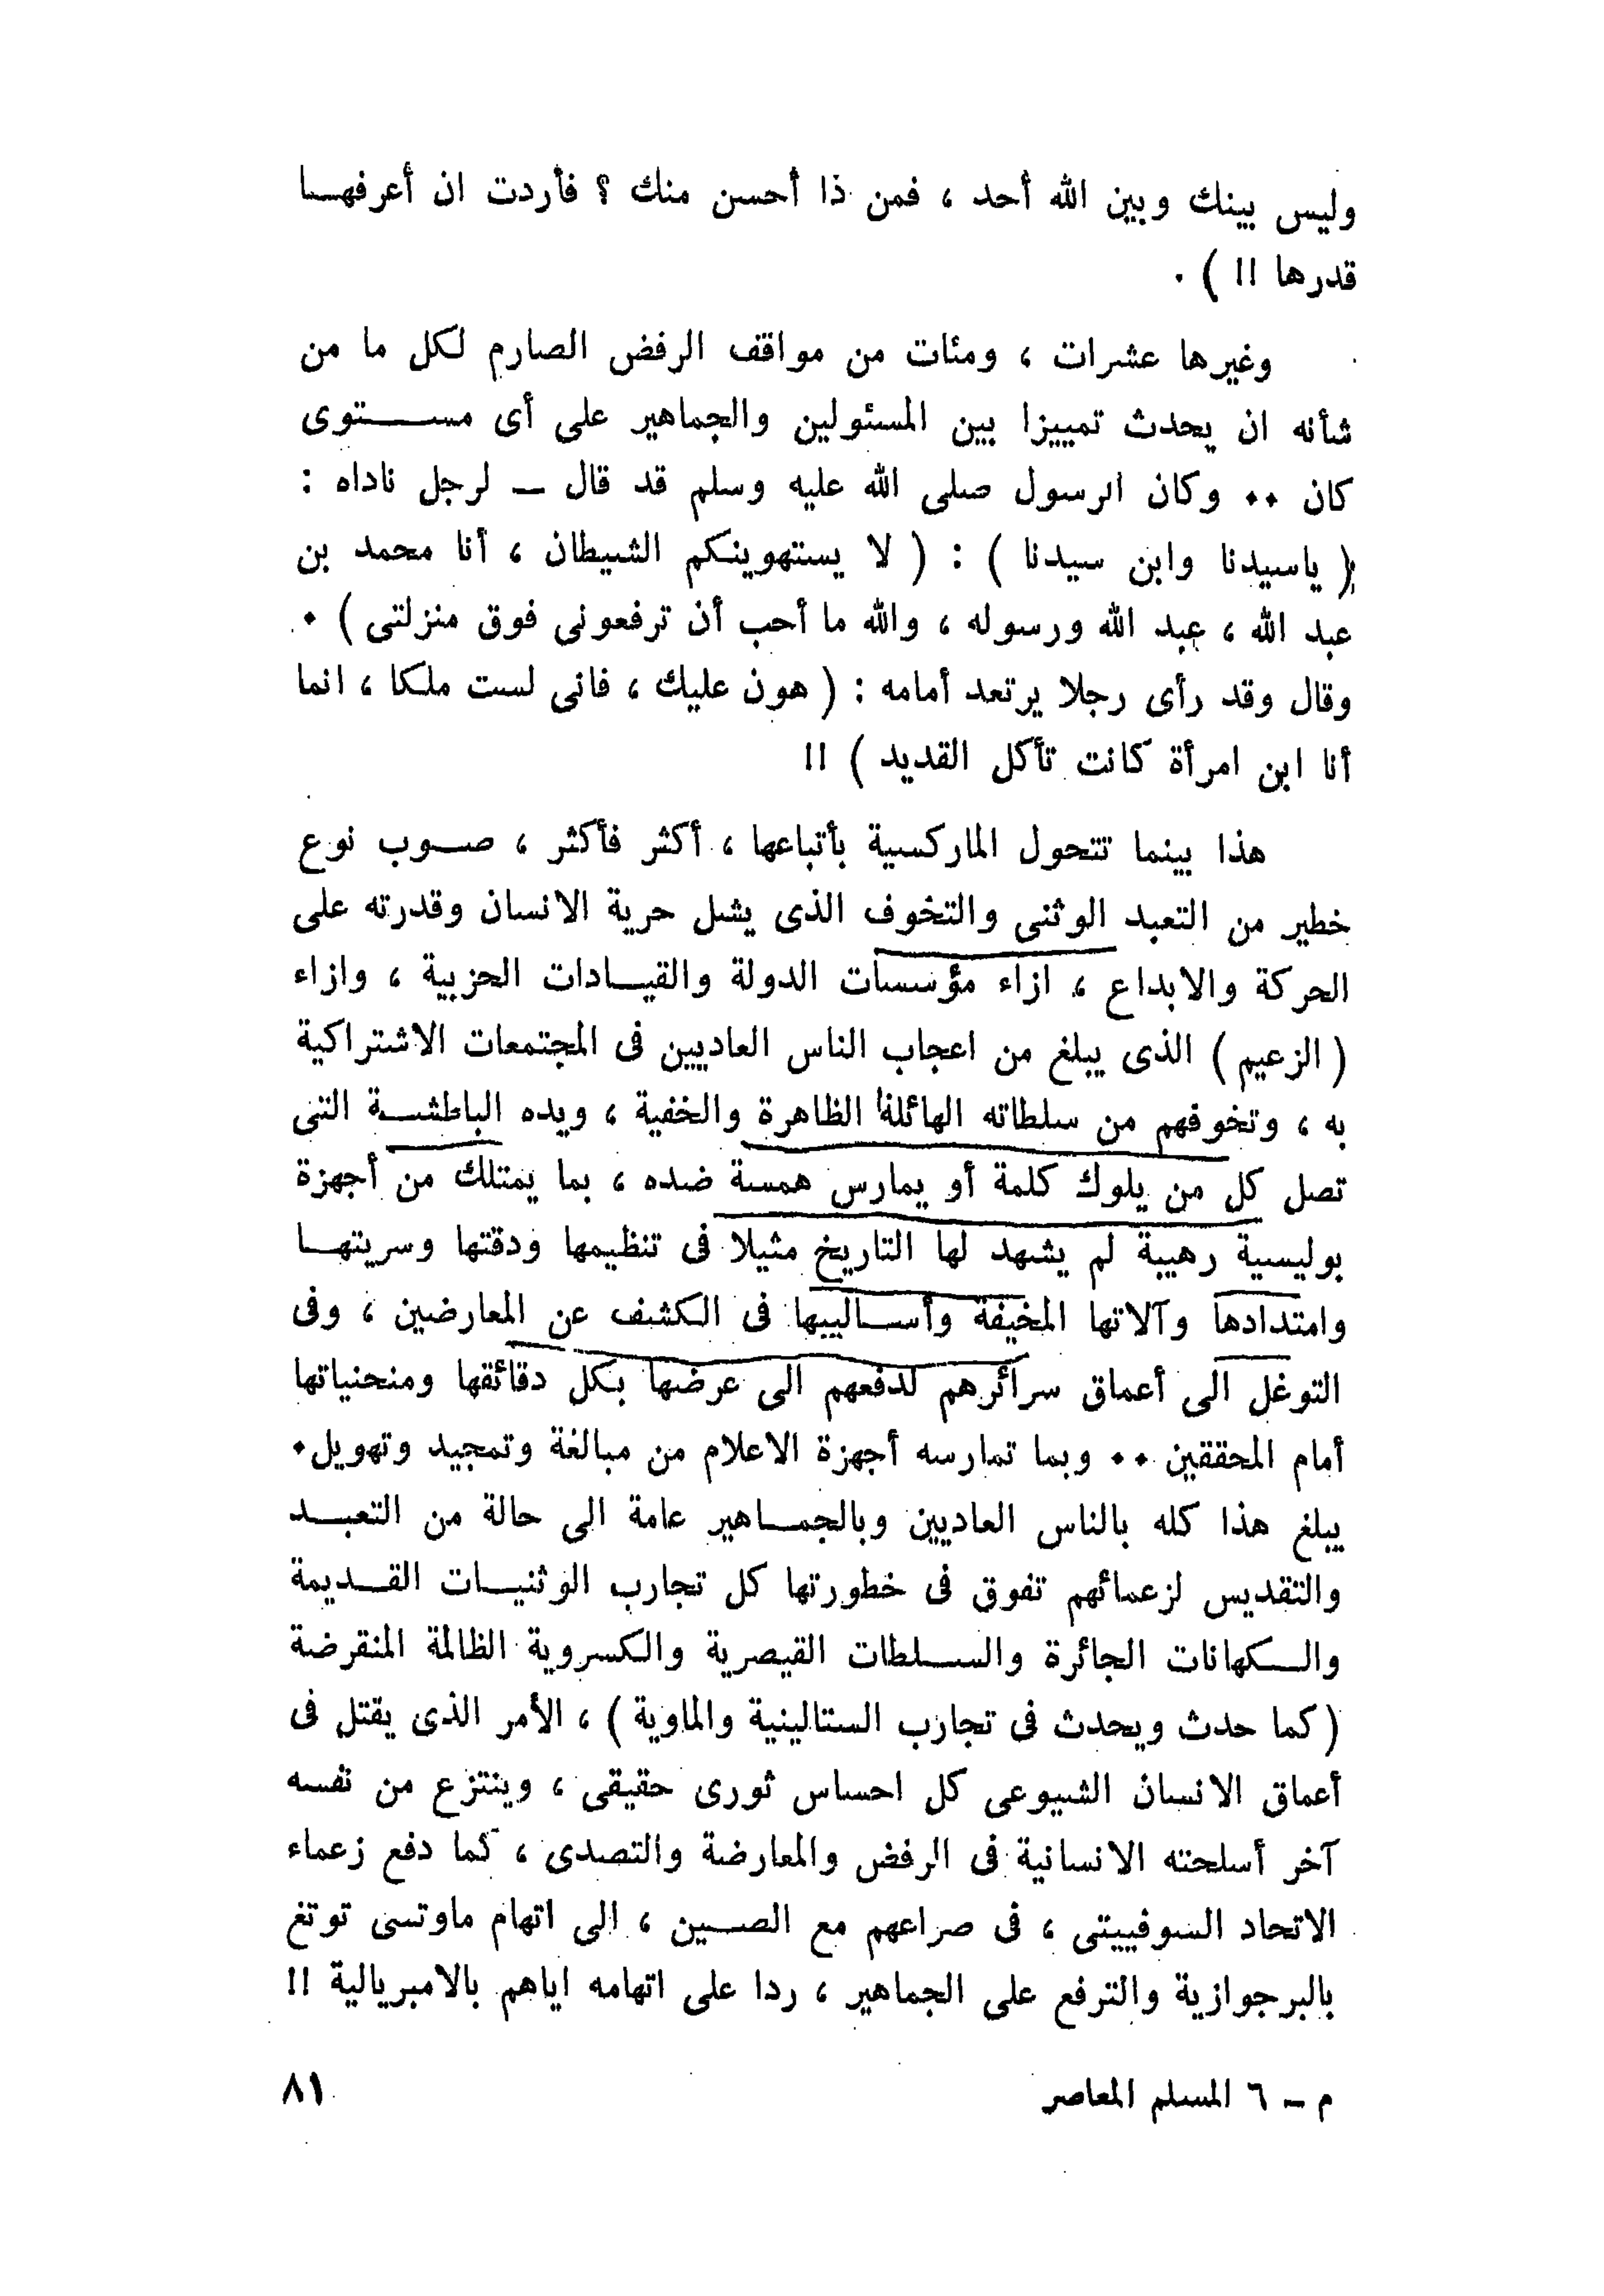 وليس بينك وبين الله أحد ، فمن ذا أحسن منك ؟ فأردت ان أعرفهــا
قدرها !! ) .
وغيرها عشرات ، ومئات من مواقف الرفض الصارم لكل ما من
شأنه ان يحدث تمييزا بين المسئولين والجماهير على أى مســـتوى
كان .. وكان الرسول صلى الله عليه وسلم قد قال ــ لرجل ناداه :
( ياسيدنا وابن سيدنا ) : ( لا يستهوينكم الشيطان ، أنا محمد بن
عبد الله ، عبد الله ورسوله ، والله ما أحب أن ترفعونى فوق منزلتى ) .
وقال وقد رأى رجلا يرتعد أمامه : ( هون عليك ، فانى لست ملكا ، انما
أنا ابن امرأة كانت تأكل القديد ) !!
هذا بينما تتحول الماركسية بأتباعها ، أكثر فأكثر ، صــوب نوع
خطير من التعبد الوثنى والتخوف الذى يشل حرية الانسان وقدرته على
الحركة والابداع ، ازاء مؤسسات الدولة والقيــادات الحزبية ، وازاء
( الزعيم ) الذى يبلغ من اعجاب الناس العاديين فى المجتمعات الاشتراكية
به ، وتخوفهم من سلطاته الهائلة الظاهرة والخفية ، ويده الباطشــة التى
تصل كل من يلوك كلمة أو يمارس همسة ضده ، بما يمتلك من أجهزة
بوليسية رهيبة لم يشهد لها التاريخ مثيلا فى تنظيمها ودقتها وسريتهــا
وامتدادها وآلاتها المخيفة وأســاليبها فى الكشف عن المعارضين ، وفى
التوغل الى أعماق سرائرهم لدفعهم الى عرضها بكل دقائقها ومنحنياتها
أمام المحققين .. وبما تمارسه أجهزة الاعلام من مبالغة وتمجيد وتهويل.
يبلغ هذا كله بالناس العاديين وبالجمــاهير عامة الى حالة من التعبــد
والتقديس لزعمائهم تفوق فى خطورتها كل تجارب الوثنيــات القــديمة
والــكهانات الجائرة والســلطات القيصرية والكسروية الظالمة المنقرضة
( كما حدث ويحدث فى تجارب الستالينية والماوية ) ، الأمر الذى يقتل فى
أعماق الانسان الشيوعى كل احساس ثورى حقيقى ، وينتزع من نفسه
آخر أسلحته الانسانية فى الرفض والمعارضة والتصدى ، كما دفع زعماء
الاتحاد السوفييتى ، فى صراعهم مع الصــين ، الى اتهام ماوتسى توتغ
بالبرجوازية والترفع على الجماهير ، ردا على اتهامه اياهم بالامبريالية !!
م ــ ٦ المسلم المعاصر
٨١